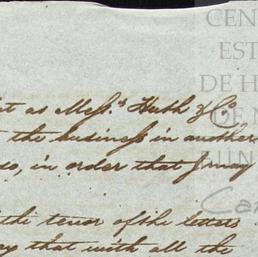 CEN
EST
DE H
as Mess.rs Huth & Co
the business in another
so, in order that I may
the tenor of the letters
that with all the